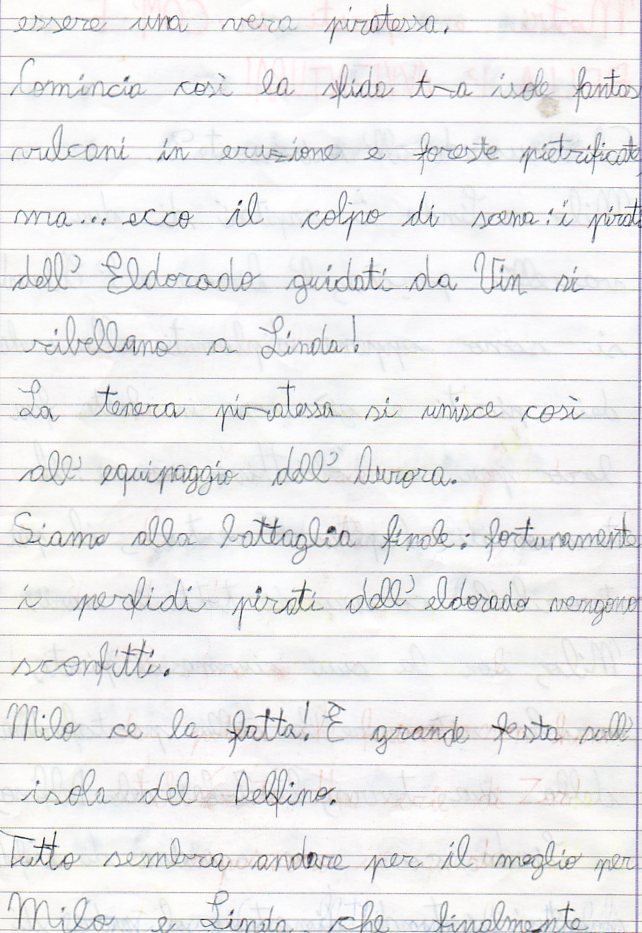 essere una vera piratessa.
Comincia così la sfida tra isole fantas
vulcani in eruzione e foreste pietrificate
ma... ecco il colpo di scena: i pirati
dell' Eldorado guidati da Vin si
ribellano a Linda!
La tenera piratessa si unisce così
all' equipaggio dell' Aurora.
Siamo alla battaglia finale: fortunamente
i perfidi pirati dell' eldorado vengono
sconfitti.
Milo ce la fatta! È grande festa sull'
isola del Delfino.
Tutto sembra andare per il meglio per
Milo e Linda che finalmente